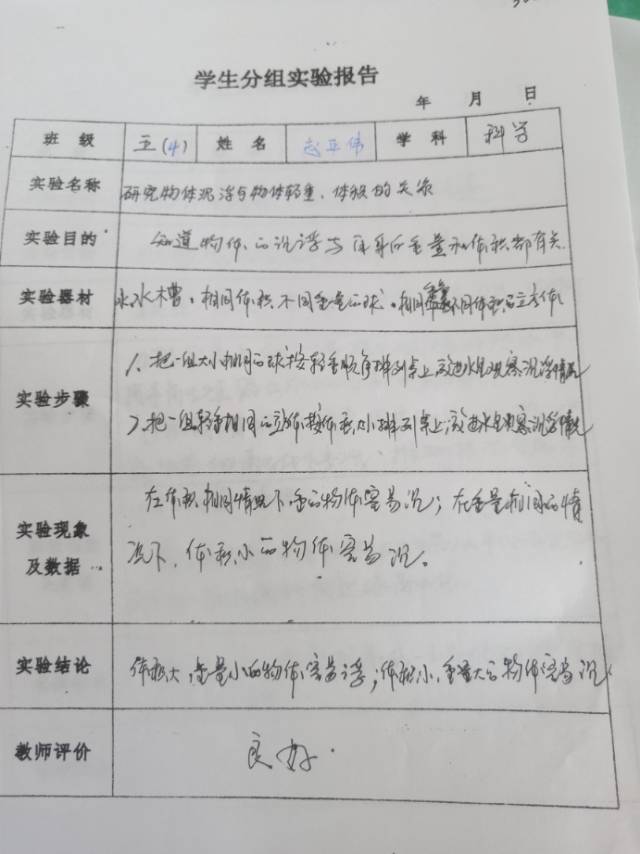 学生分组实验报告
年 月 日
班级 五(4) 姓名 赵平伟 学科 科学
实验名称 研究物体沉浮与物体轻重、体积的关系
实验目的 知道物体的沉浮与自身的重量和体积都有关
实验器材 水水槽、相同体积不同重量的球、相同重量不同体积的立方体
实验步骤
1、把一组大小相同的球按轻重顺序排列桌上放进水里观察沉浮情况
2、把一组轻重相同的立体按体积小排列桌上放进水里观察沉浮情况
实验现象及数据
在体积相同情况下重的物体容易沉；在重量相同的情
况下，体积小的物体容易沉。
实验结论 体积大，重量小的物体容易浮；体积小，重量大的物体容易沉
教师评价 良好.